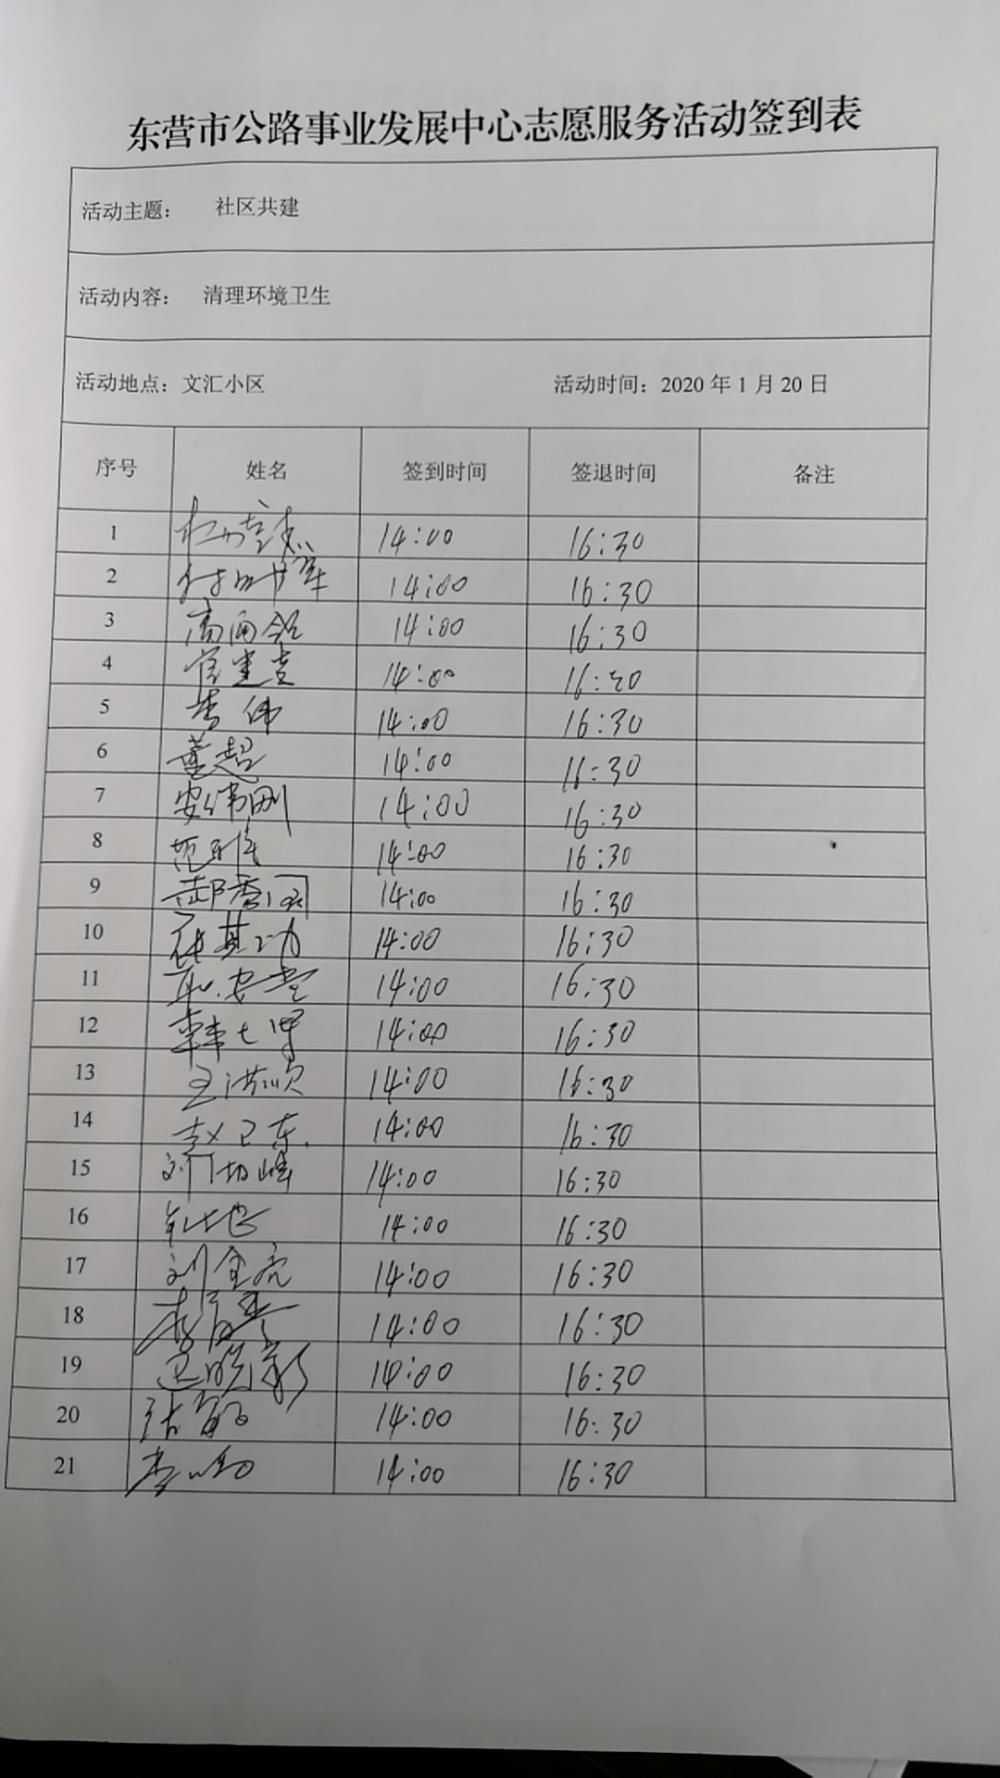 东营市公路事业发展中心志愿服务活动签到表
活动主题： 社区共建
活动内容： 清理环境卫生
活动地点：文汇小区 活动时间：2020年1月20日
序号 姓名 签到时间 签退时间 备注
1 14:00 16:30
2 14:00 16:30
3 高雨 14:00 16:30
4 14:00 16:30
5 李伟 14:00 16:30
6 董超 14:00 16:30
7 安伟刚 14:00 16:30
8 范雅 14:00 16:30
9 14:00 16:30
10 张其功 14:00 16:30
11 耿安堂 14:00 16:30
12 韩 14:00 16:30
13 王洪顺 14:00 16:30
14 赵卫东 14:00 16:30
15 刘 峰 14:00 16:30
16 14:00 16:30
17 刘金亮 14:00 16:30
18 李 14:00 16:30
19 14:00 16:30
20 张 14:00 16:30
21 李 14:00 16:30